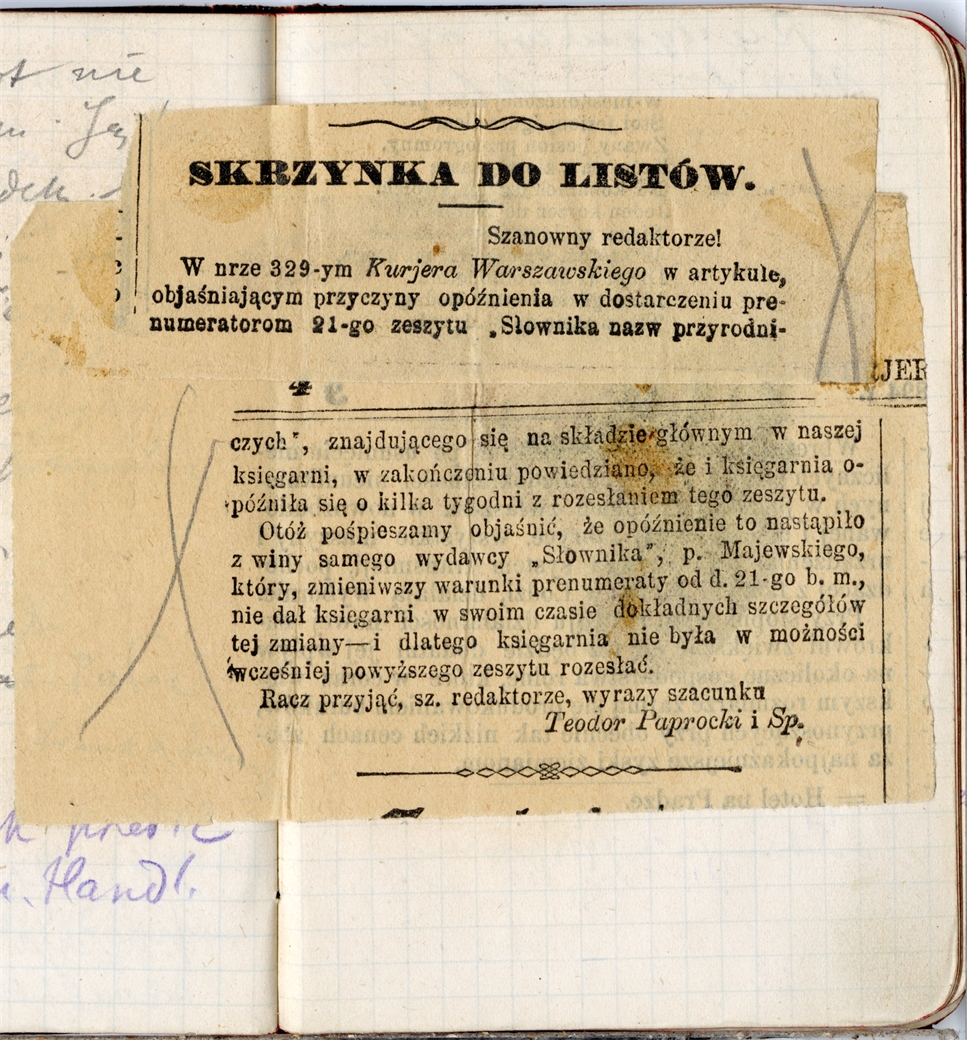 nie
SKRZYNKA DO LISTÓW.
Szanowny redaktorze!
W nrze 329-ym Kurjera Warszawskiego w artykule,
objaśniającym przyczyny opóźnienia w dostarczeniu pre-
numeratorom 21-go zeszytu „Słownika nazw przyrodni-
JER
4
czych", znajdującego się na składzie głównym w naszej
księgarni, w zakończeniu powiedziano, że i księgarnia o-
późniła się o kilka tygodni z rozesłaniem tego zeszytu.
Otóż pośpieszamy objaśnić, że opóźnienie to nastąpiło
z winy samego wydawcy „Słownika", p. Majewskiego,
który, zmieniwszy warunki prenumeraty od d. 21-go b. m.,
nie dał księgarni w swoim czasie dokładnych szczegółów
tej zmiany—i dlatego księgarnia nie była w możności
wcześniej powyższego zeszytu rozesłać.
Racz przyjąć, sz. redaktorze, wyrazy szacunku
Teodor Paprocki i Sp.
Handl.